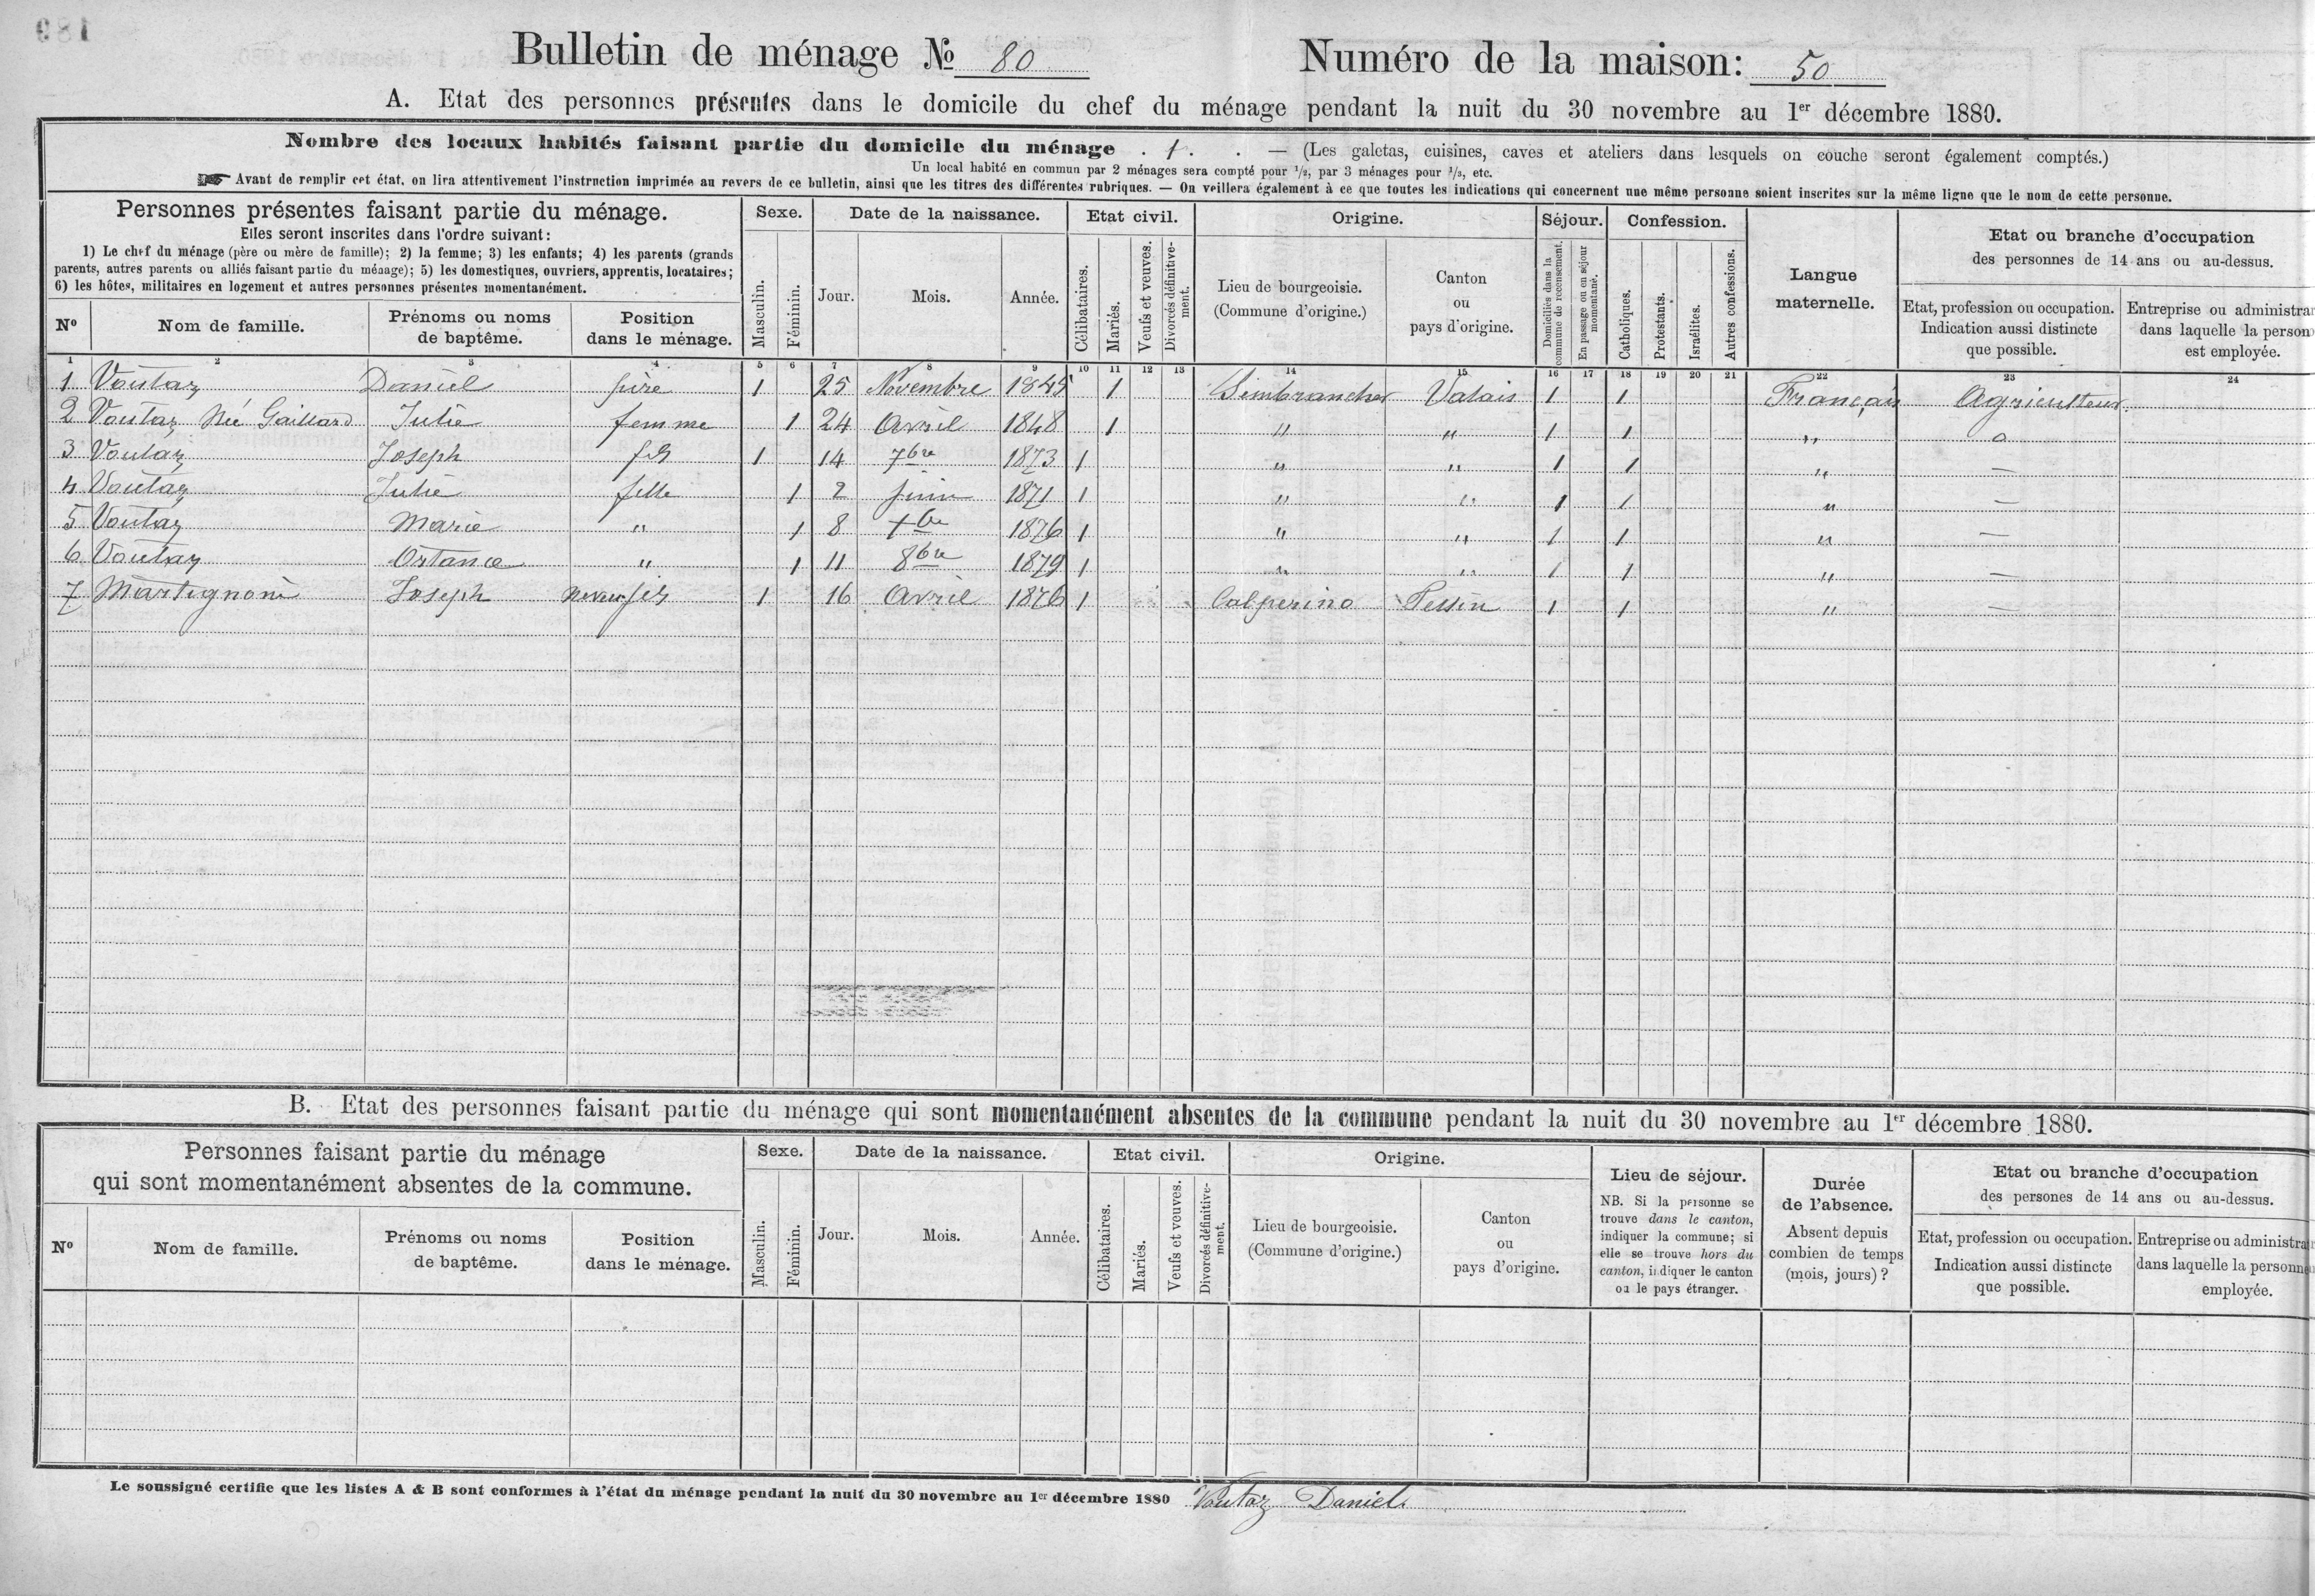 Bulletin de ménage No 80 Numéro de la maison: 50
A. Etat des personnes présentes dans le domicile du chef du ménage pendant la nuit du 30 novembre au 1er décembre 1880.
Nombre des locaux habités faisant partie du domicile du ménage . 1 . . — (Les galetas, cuisines, caves et ateliers dans lesquels on couche seront également comptés.)
Un local habité en commun par 2 ménages sera compté pour 1/2, par 3 ménages pour 1/3, etc.
☛ Avant de remplir cet état, on lira attentivement l'instruction imprimée au revers de ce bulletin, ainsi que les titres des différentes rubriques. — On veillera également à ce que toutes les indications qui concernent une même personne soient inscrites sur la même ligne que le nom de cette personne.
Personnes présentes faisant partie du ménage. Sexe. Date de la naissance. Etat civil. Origine. Séjour. Confession.
Elles seront inscrites dans l'ordre suivant:
1) Le chef du ménage (père ou mère de famille); 2) la femme; 3) les enfants; 4) les parents (grands
parents, autres parents ou alliés faisant partie du ménage); 5) les domestiques, ouvriers, apprentis, locataires;
6) les hôtes, militaires en logement et autres personnes présentes momentanément.
Nº Nom de famille. Prénoms ou noms de baptême. Position dans le ménage. Masculin. Féminin. Jour. Mois. Année. Célibataires. Mariés. Veufs et veuves. Divorcés définitivement. Lieu de bourgeoisie. (Commune d'origine.) Canton ou pays d'origine. Domiciliés dans la commune de recensement. En passage ou en séjour momentané. Catholiques. Protestants. Israélites. Autres confessions. Langue maternelle.
Etat ou branche d'occupation
des personnes de 14 ans ou au-dessus.
Etat, profession ou occupation. Indication aussi distincte que possible. Entreprise ou administra dans laquelle la person est employée.
1 2 3 4 5 6 7 8 9 10 11 12 13 14 15 16 17 18 19 20 21 22 23 24
1 Voutaz Daniel père 1 25 Novembre 1845 1 Sembrancher Valais 1 1 Français Agriculteur
2 Voutaz Née Gaillard Julie femme 1 24 Avril 1848 1 " " 1 1 "
3 Voutaz Joseph fils 1 14 7bre 1873 1 " " 1 1 " —
4 Voutaz Julie fille 1 2 juin 1871 1 " " 1 1 " —
5 Voutaz Marie " 1 8 1876 1 " " 1 1 " —
6 Voutaz Ortance " 1 11 8bre 1879 1 " " 1 1 " —
7 Martignoni Joseph neveu fils 1 16 Avril 1876 1 Calperino Tessin 1 1 " —
B. Etat des personnes faisant partie du ménage qui sont momentanément absentes de la commune pendant la nuit du 30 novembre au 1er décembre 1880.
Personnes faisant partie du ménage
qui sont momentanément absentes de la commune.
Sexe. Date de la naissance. Etat civil. Origine.
Nº Nom de famille. Prénoms ou noms de baptême. Position dans le ménage. Masculin. Féminin. Jour. Mois. Année. Célibataires. Mariés. Veufs et veuves. Divorcés définitivement. Lieu de bourgeoisie. (Commune d'origine.) Canton ou pays d'origine.
Lieu de séjour.
NB. Si la personne se
trouve dans le canton,
indiquer la commune; si
elle se trouve hors du
canton, indiquer le canton
ou le pays étranger.
Durée
de l'absence.
Absent depuis
combien de temps
(mois, jours)?
Etat ou branche d'occupation
des persones de 14 ans ou au-dessus.
Etat, profession ou occupation. Indication aussi distincte que possible. Entreprise ou administra dans laquelle la personne employée.
Le soussigné certifie que les listes A & B sont conformes à l'état du ménage pendant la nuit du 30 novembre au 1er décembre 1880 Voutaz Daniel